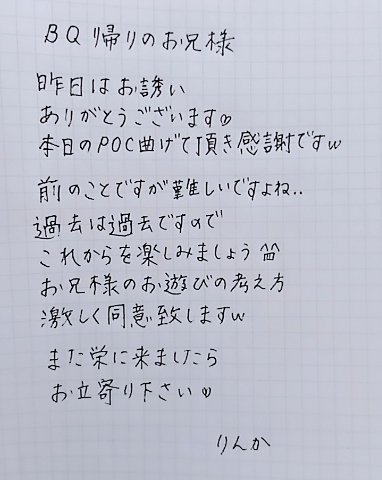 BQ帰りのお兄様
昨日はお誘い
ありがとうございます♡
本日のPOC曲げて頂き感謝ですw
前のことですが難しいですよね..
過去は過去ですので
これからを楽しみましょう
お兄様のお遊びの考え方
激しく同意致しますw
また栄に来ましたら
お立寄り下さい♡
りんか